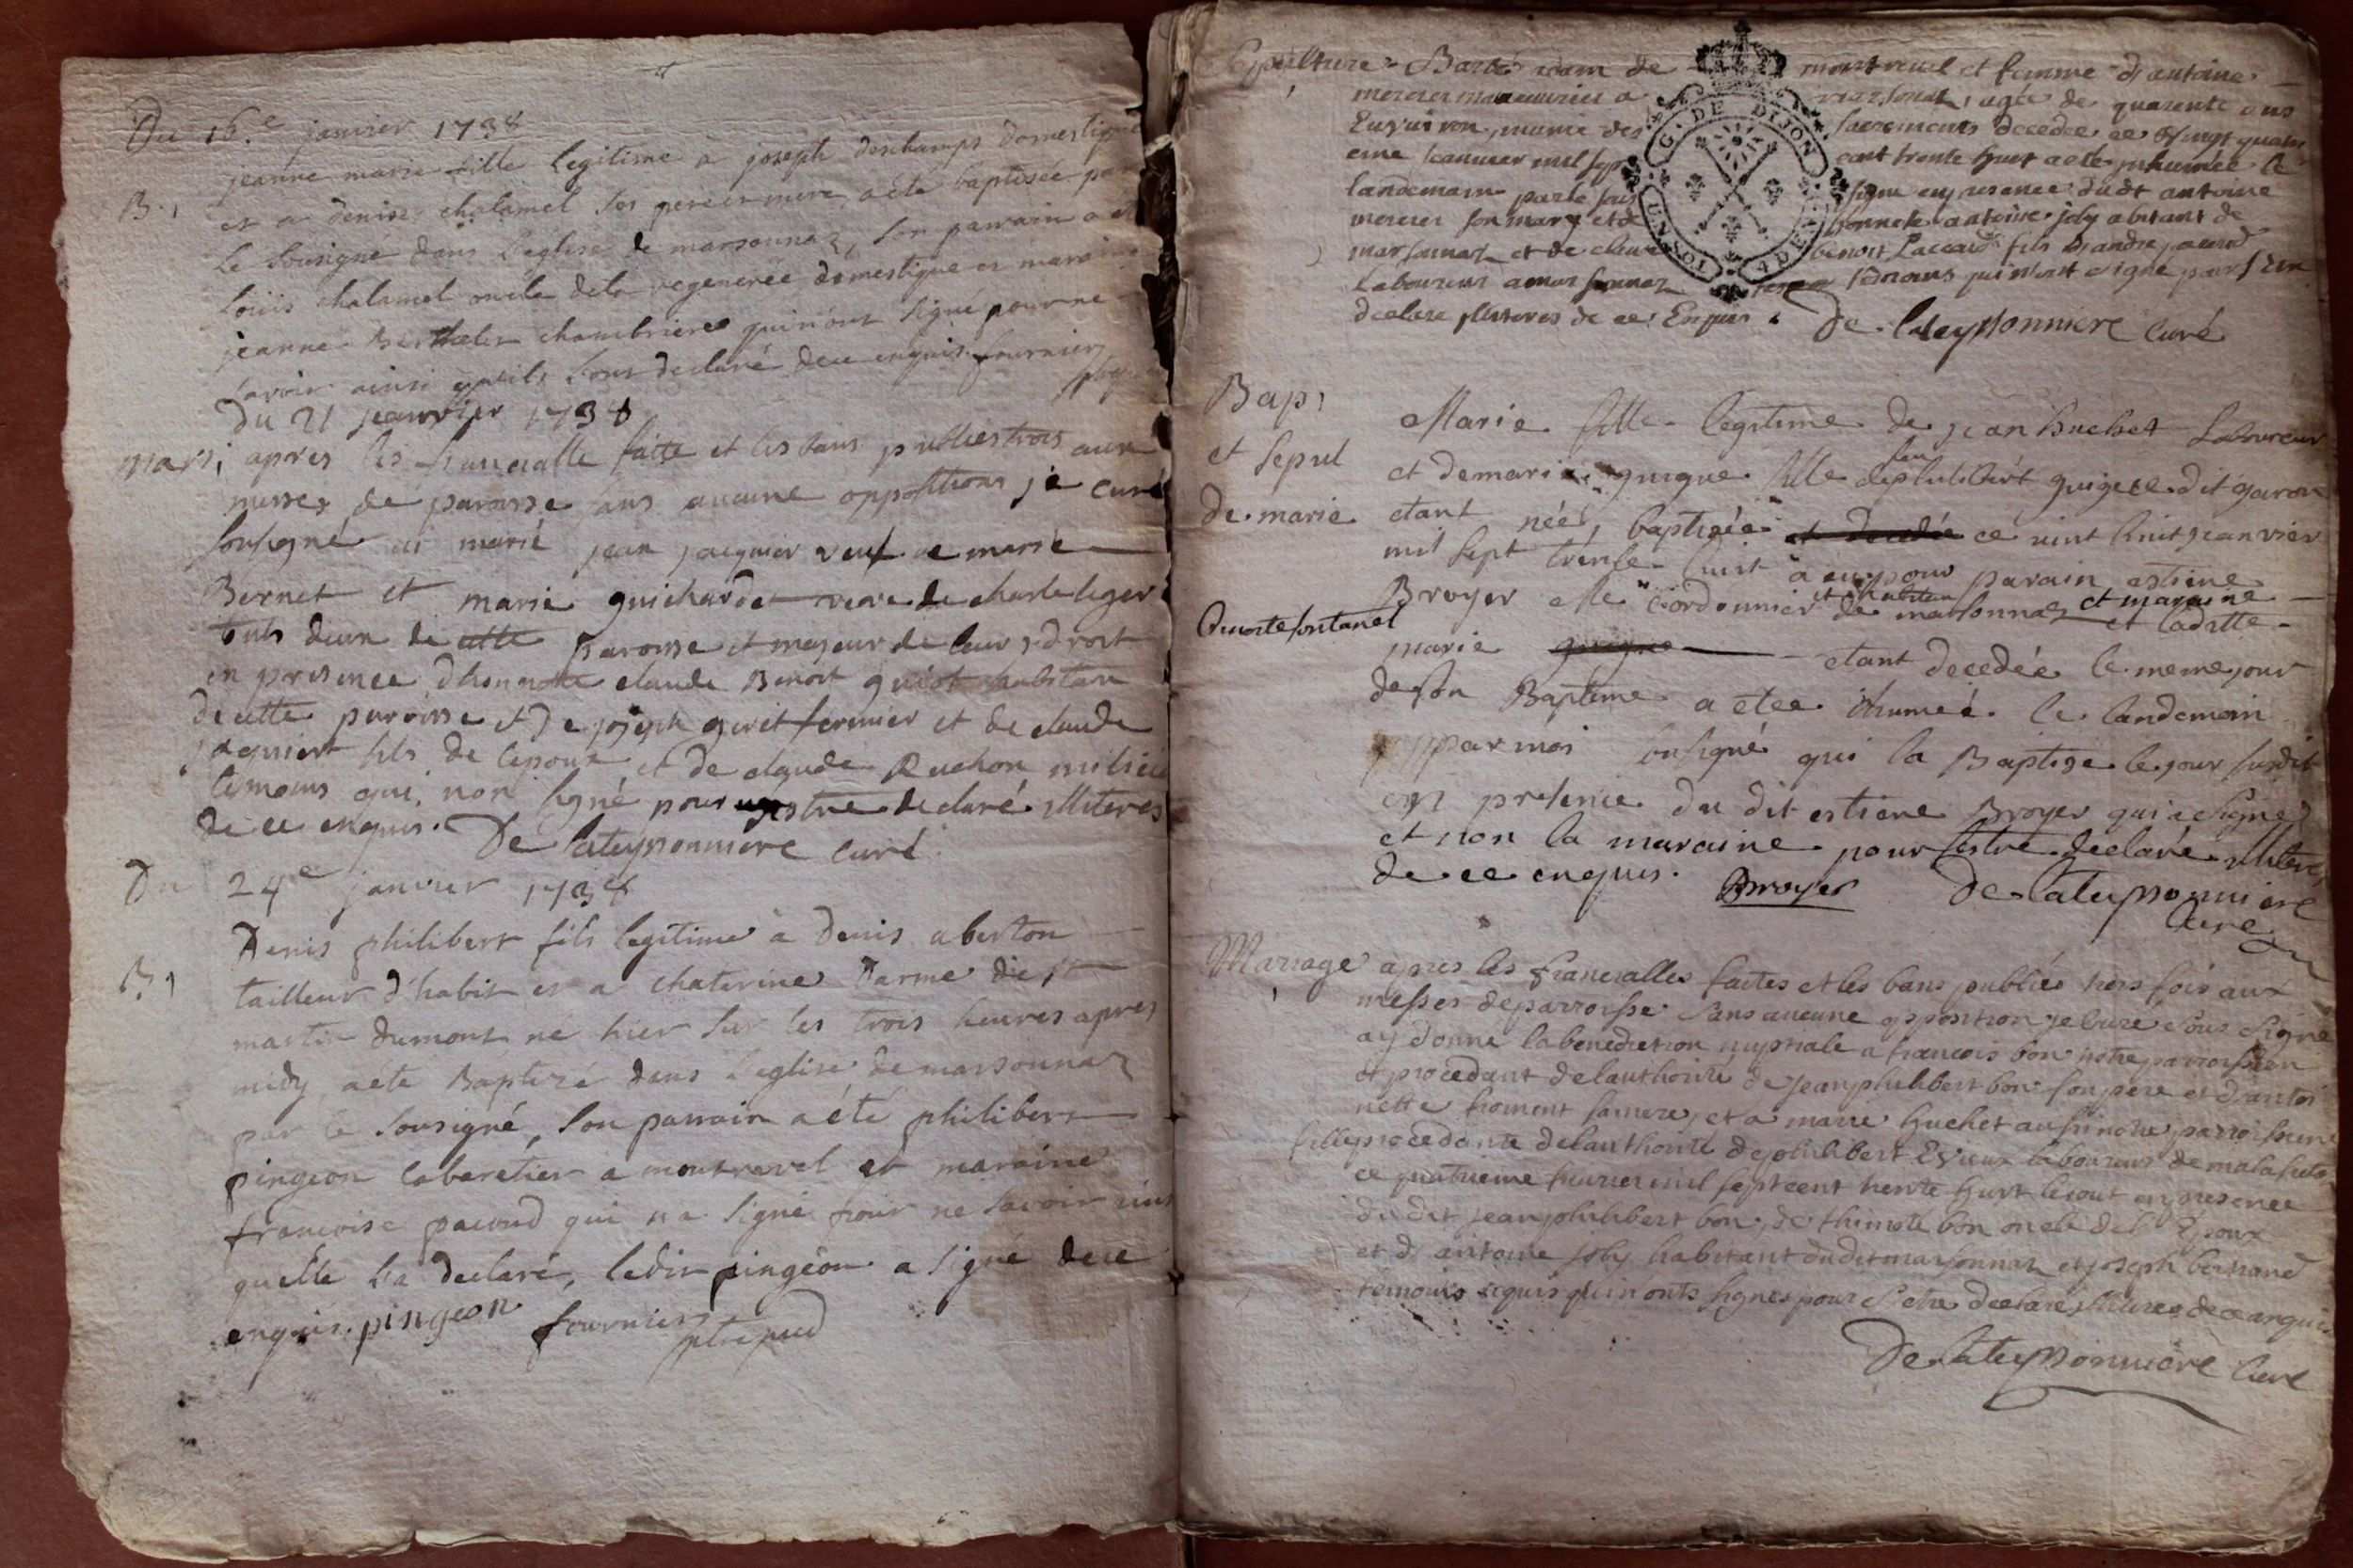 Du 16.e janvier 1738
jeanne marie fille legitime a joseph deschamps domestique
B. et a denise chalamel ses pere et mere, a été baptisée par
le sousigné dans l'eglise de marsonnaz, son parrain a été
Loüis chalamel oncle de la regenerée domestique et maraine
jeanne Berthelet chambriere qui n'ont signé pour ne
savoir ainsi qu'ils l'ont declaré de ce enquis. fournier
Du 21 jeanvier 1738
mari, apres les fiancialle faitte et les bans publies trois aux
messes de paroisse sans aucune oppositions je curé
sousigné ai marié jean jacquier veuf de marie
Bernet et marie guichardet veve de charle leger
touts deux de cette paroisse et majeur de leurs droit
en presence d'honnete claude Benoit guiot habitan
de cette paroisse et de joseph geret fermier et de claude
jaquiert fils de l'epoux et de claude Ruchon milicie
temoins qui non signé pour s'estre declaré illiteres
de ce enquis. De lateyssonniere curé
Du 24e janvier 1738
Denis philibert fils legitime a Denis aberton
B. tailleur d'habit et a chaterine Darme de st
martin dumont né hier sur les trois heures apres
midy, a été Baptizé dans l'eglise de marsonnaz
par le sousigné, son parrain a été philibert
pingeon cabaretier a montrevel et maraine
francoise pacoud qui n'a signé pour ne savoir ains
qu'elle l'a declaré, ledit pingeon a signé de ce
enquis. pingeon fournier
Sepulture Barbe de montrevel et femme d'antoine
mercier manouvrier a marsonnaz, agée de quarente ans
Enquiron, munie des sacrements decedee ce vingt quatri
eme jeanvier mil sept cent trente huit a eté inhumée le
landemain par le sous signe en presence dudt antoine
mercier son mary et d honnete antoine joly abitant de
marsonnaz et de benoit Paccard fils d'andre pacoud
Laboureur a marsonnaz temoins qui n'ont signé pour s'etre
declare illiteres de ce Enquis. De lateyssonniere curé
Bap, Marie fille legitime de jean huchet Laboureur
et sepul et de marie guigue fille de feu philibert guigue dit garon
de marie etant née, baptisée et decedée ce vint huit jeanvier
mil sept trente huit a eu pour parain estiene
Broyer elle cordonnier et habitan de marsonnaz et maraine
et laditte
marie guigue etant decedée le meme jour
de son Baptême a etee ihumeé le landemain
par moi sousigné qui la Baptise le jour susdit
en presence du dit estiene Broyer qui a signé
et non la maraine pour s'estre declaré illitere
de ce enquis. Broyer De lateyssonniere
curé
Mariage apres les fiancialles faites et les bans publiés trois fois aux
messes de parroisse sans aucune opposition je curé sous signé
ay donné la benediction nuptiale a francois bon notre parroissien
et procedant de l'authorité de jean philibert bon son pere et d'antoi
nette froment sa mere, et a marie huchet aussi notre parroissiene
fille procedante de l'authorité de philibert laboureur de
ce quatrieme fevrier mil sept cent trente huit le tout en presence
du dit jean philibert bon, de thimote bon oncle de l'Epoux
et d'antoine joly habitant dudit marsonnaz et joseph bertrand
temoins requis qui n'onts signes pour s'etre declaré illiteres de ce enquis
De lateyssonniere curé
G. DE DIJON
UN SOL 4 DEN.